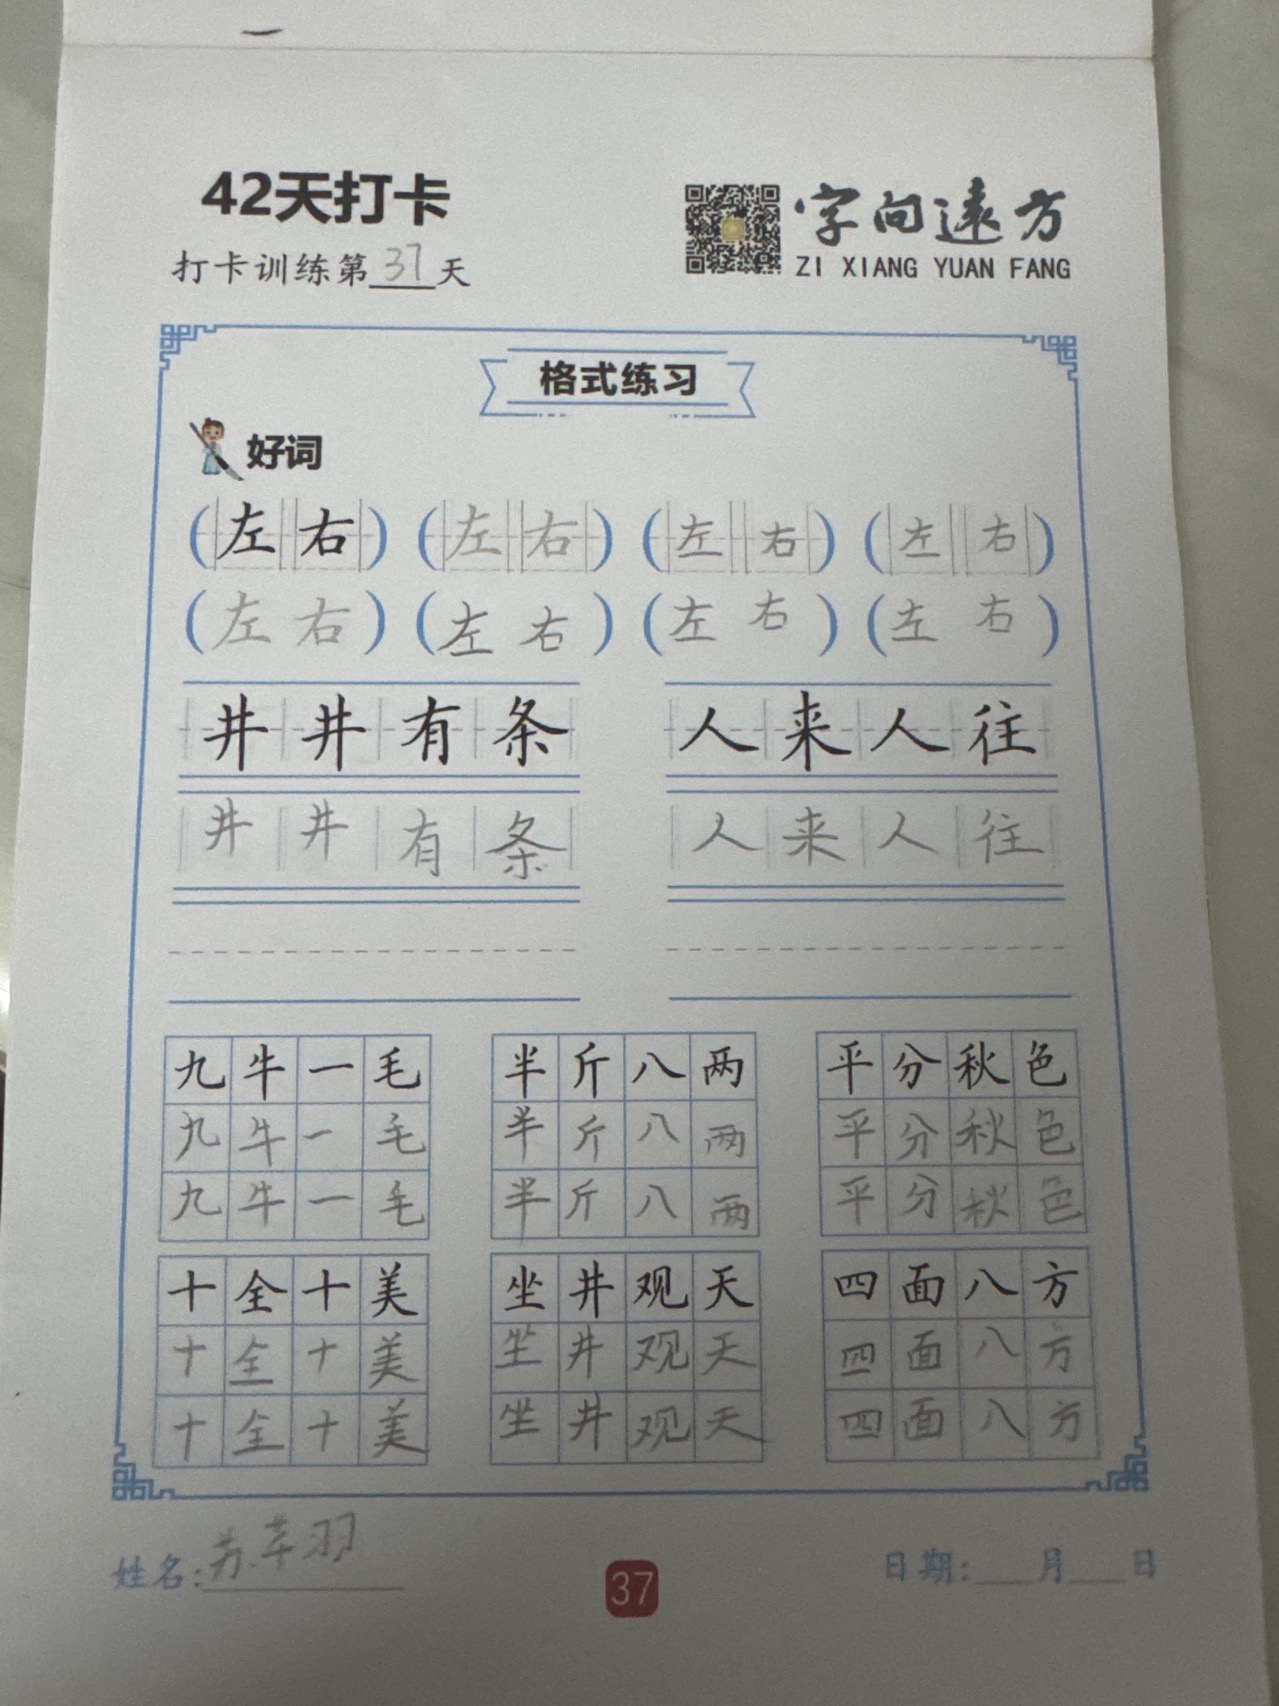 42天打卡
字向遠方
打卡训练第37天
ZI XIANG YUAN FANG
格式练习
好词
(左右) (左右) (左右) (左右)
(左右) (左右) (左右) (左右)
井井有条 人来人往
井井有条 人来人往
九牛一毛 半斤八两 平分秋色
九牛一毛 半斤八两 平分秋色
九牛一毛 半斤八两 平分秋色
十全十美 坐井观天 四面八方
十全十美 坐井观天 四面八方
十全十美 坐井观天 四面八方
姓名:苏芊羽 37 日期:___月___日